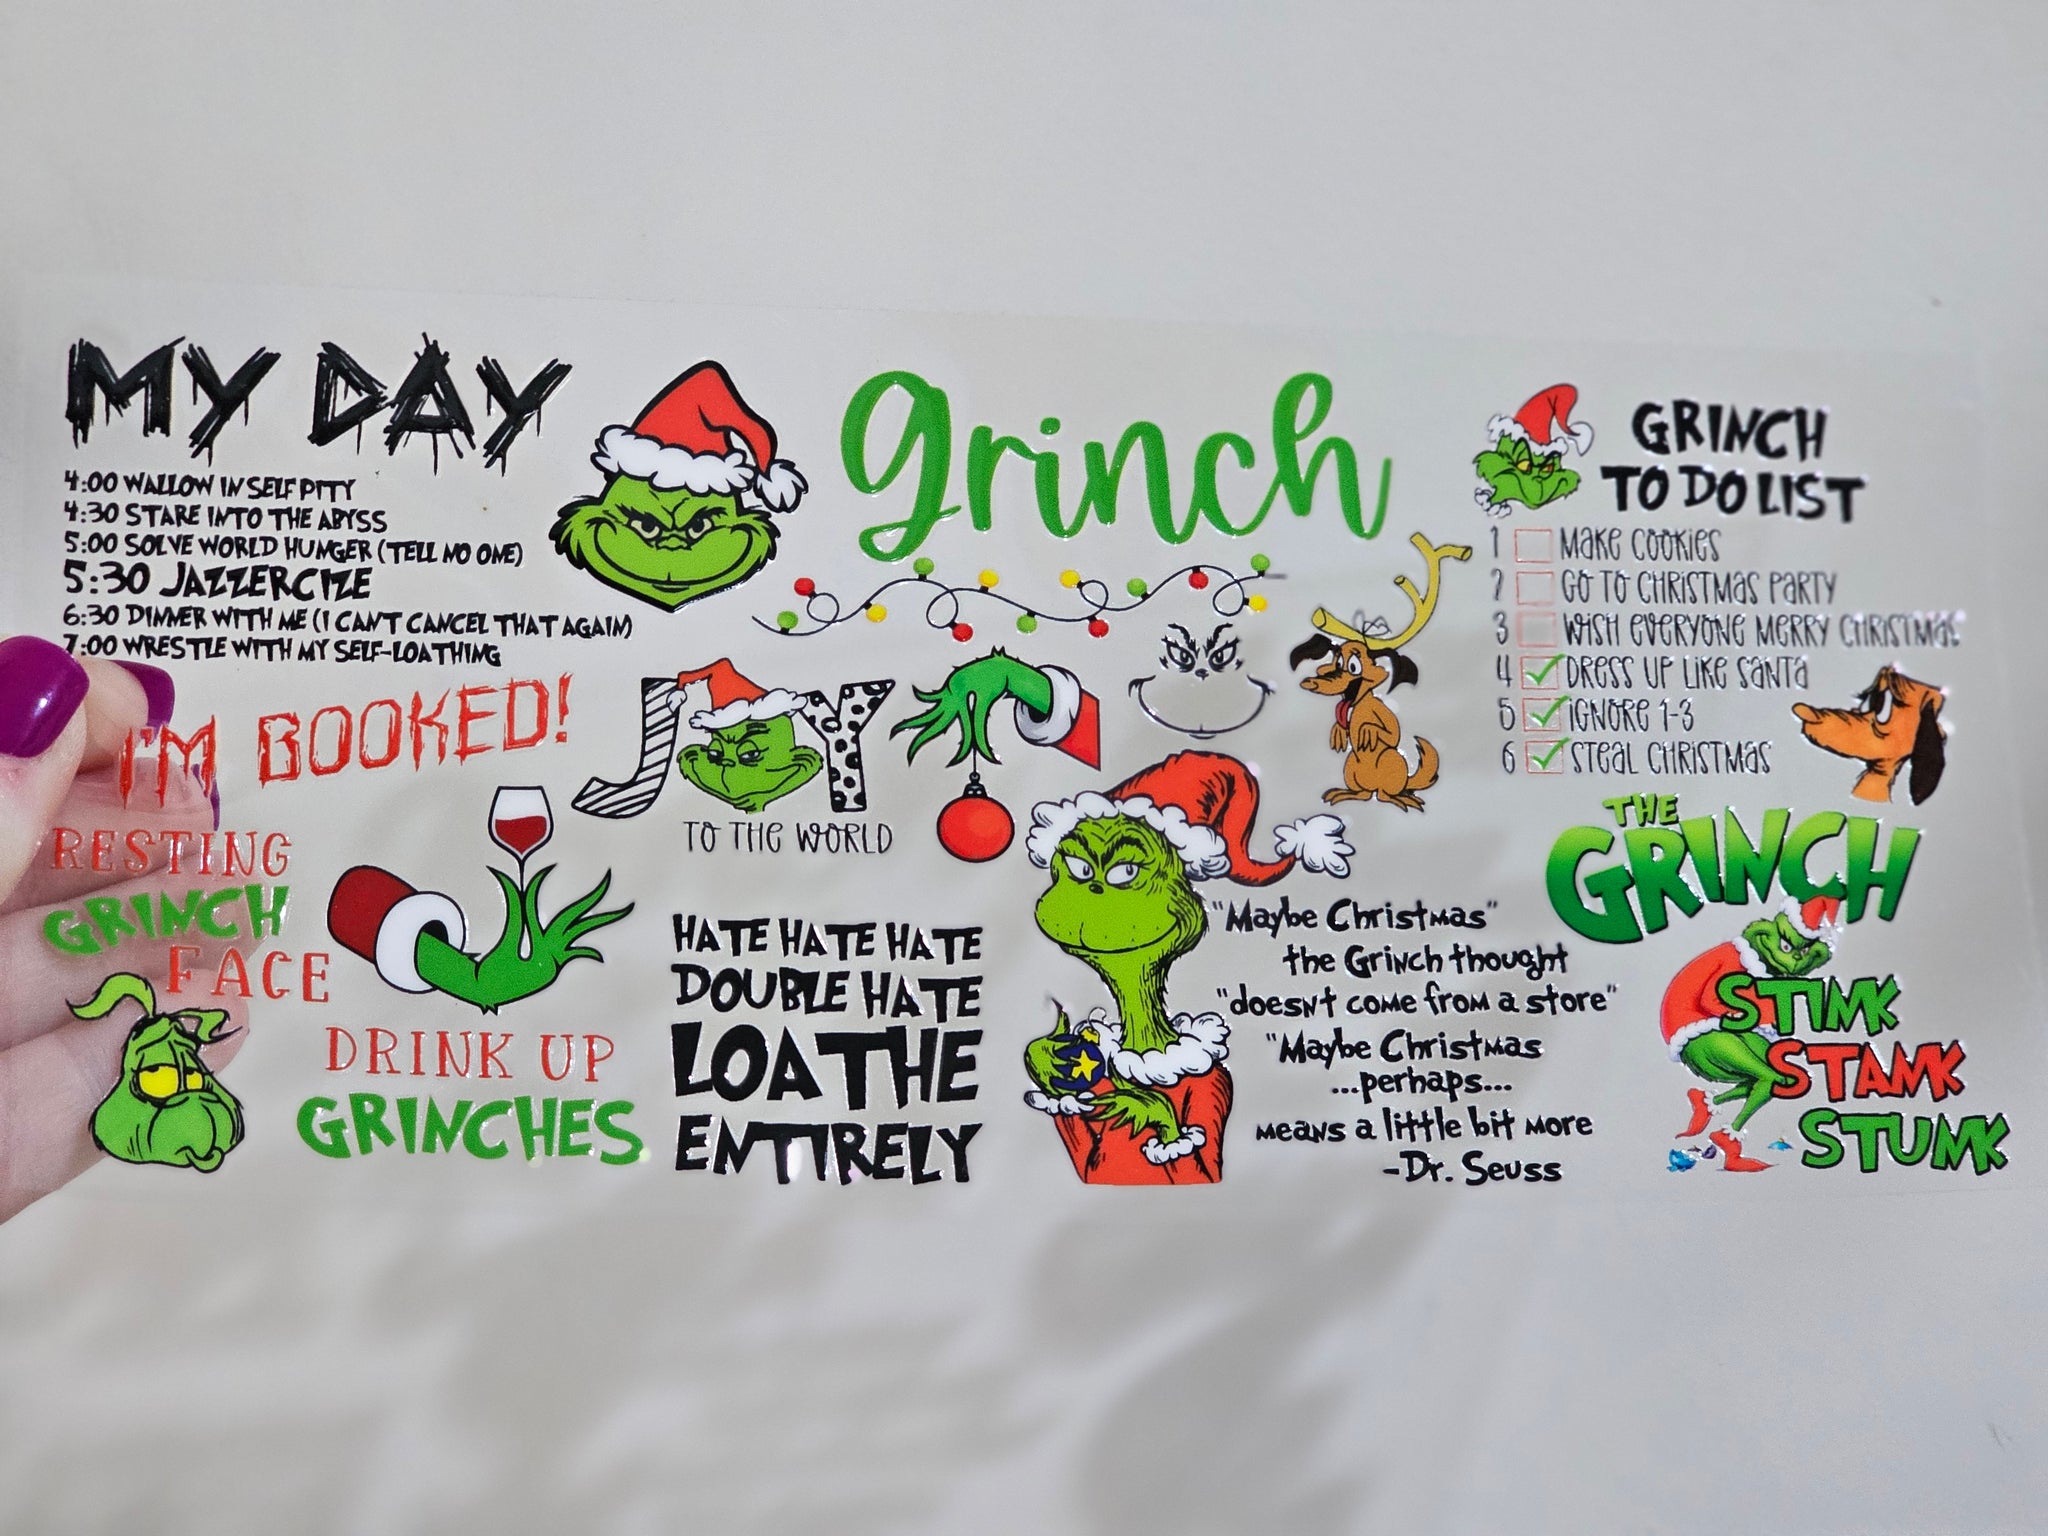 MY DAY
4:00 WALLOW IN SELF PITY
4:30 STARE INTO THE ABYSS
5:00 SOLVE WORLD HUNGER (TELL NO ONE)
5:30 JAZZERCIZE
6:30 DINNER WITH ME (I CAN'T CANCEL THAT AGAIN)
7:00 WRESTLE WITH MY SELF-LOATHING
I'M BOOKED!
grinch
GRINCH
TO DO LIST
1 MAKE COOKIES
2 GO TO CHRISTMAS PARTY
3 WISH EVERYONE MERRY CHRISTMAS
4 DRESS UP LIKE SANTA
5 IGNORE 1-3
6 STEAL CHRISTMAS
JOY
TO THE WORLD
RESTING
GRINCH
FACE
DRINK UP
GRINCHES
HATE HATE HATE
DOUBLE HATE
LOATHE
ENTIRELY
"Maybe Christmas"
the Grinch thought
"doesn't come from a store"
"Maybe Christmas
...perhaps...
means a little bit more
-Dr. Seuss
THE
GRINCH
STINK
STANK
STUNK